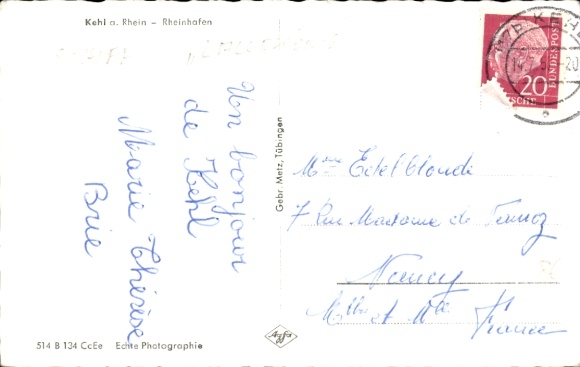 Kehl a. Rhein – Rheinhafen
Un bonjour
de Kehl
Marie Thérèse
Brie
Gebr. Metz, Tübingen
20
BUNDESPOST
SCHE
KEHL
Mme
7 Rue Madame de
Nancy
M et Mlle
France
Agfa
514 B 134 CcEe Echte Photographie